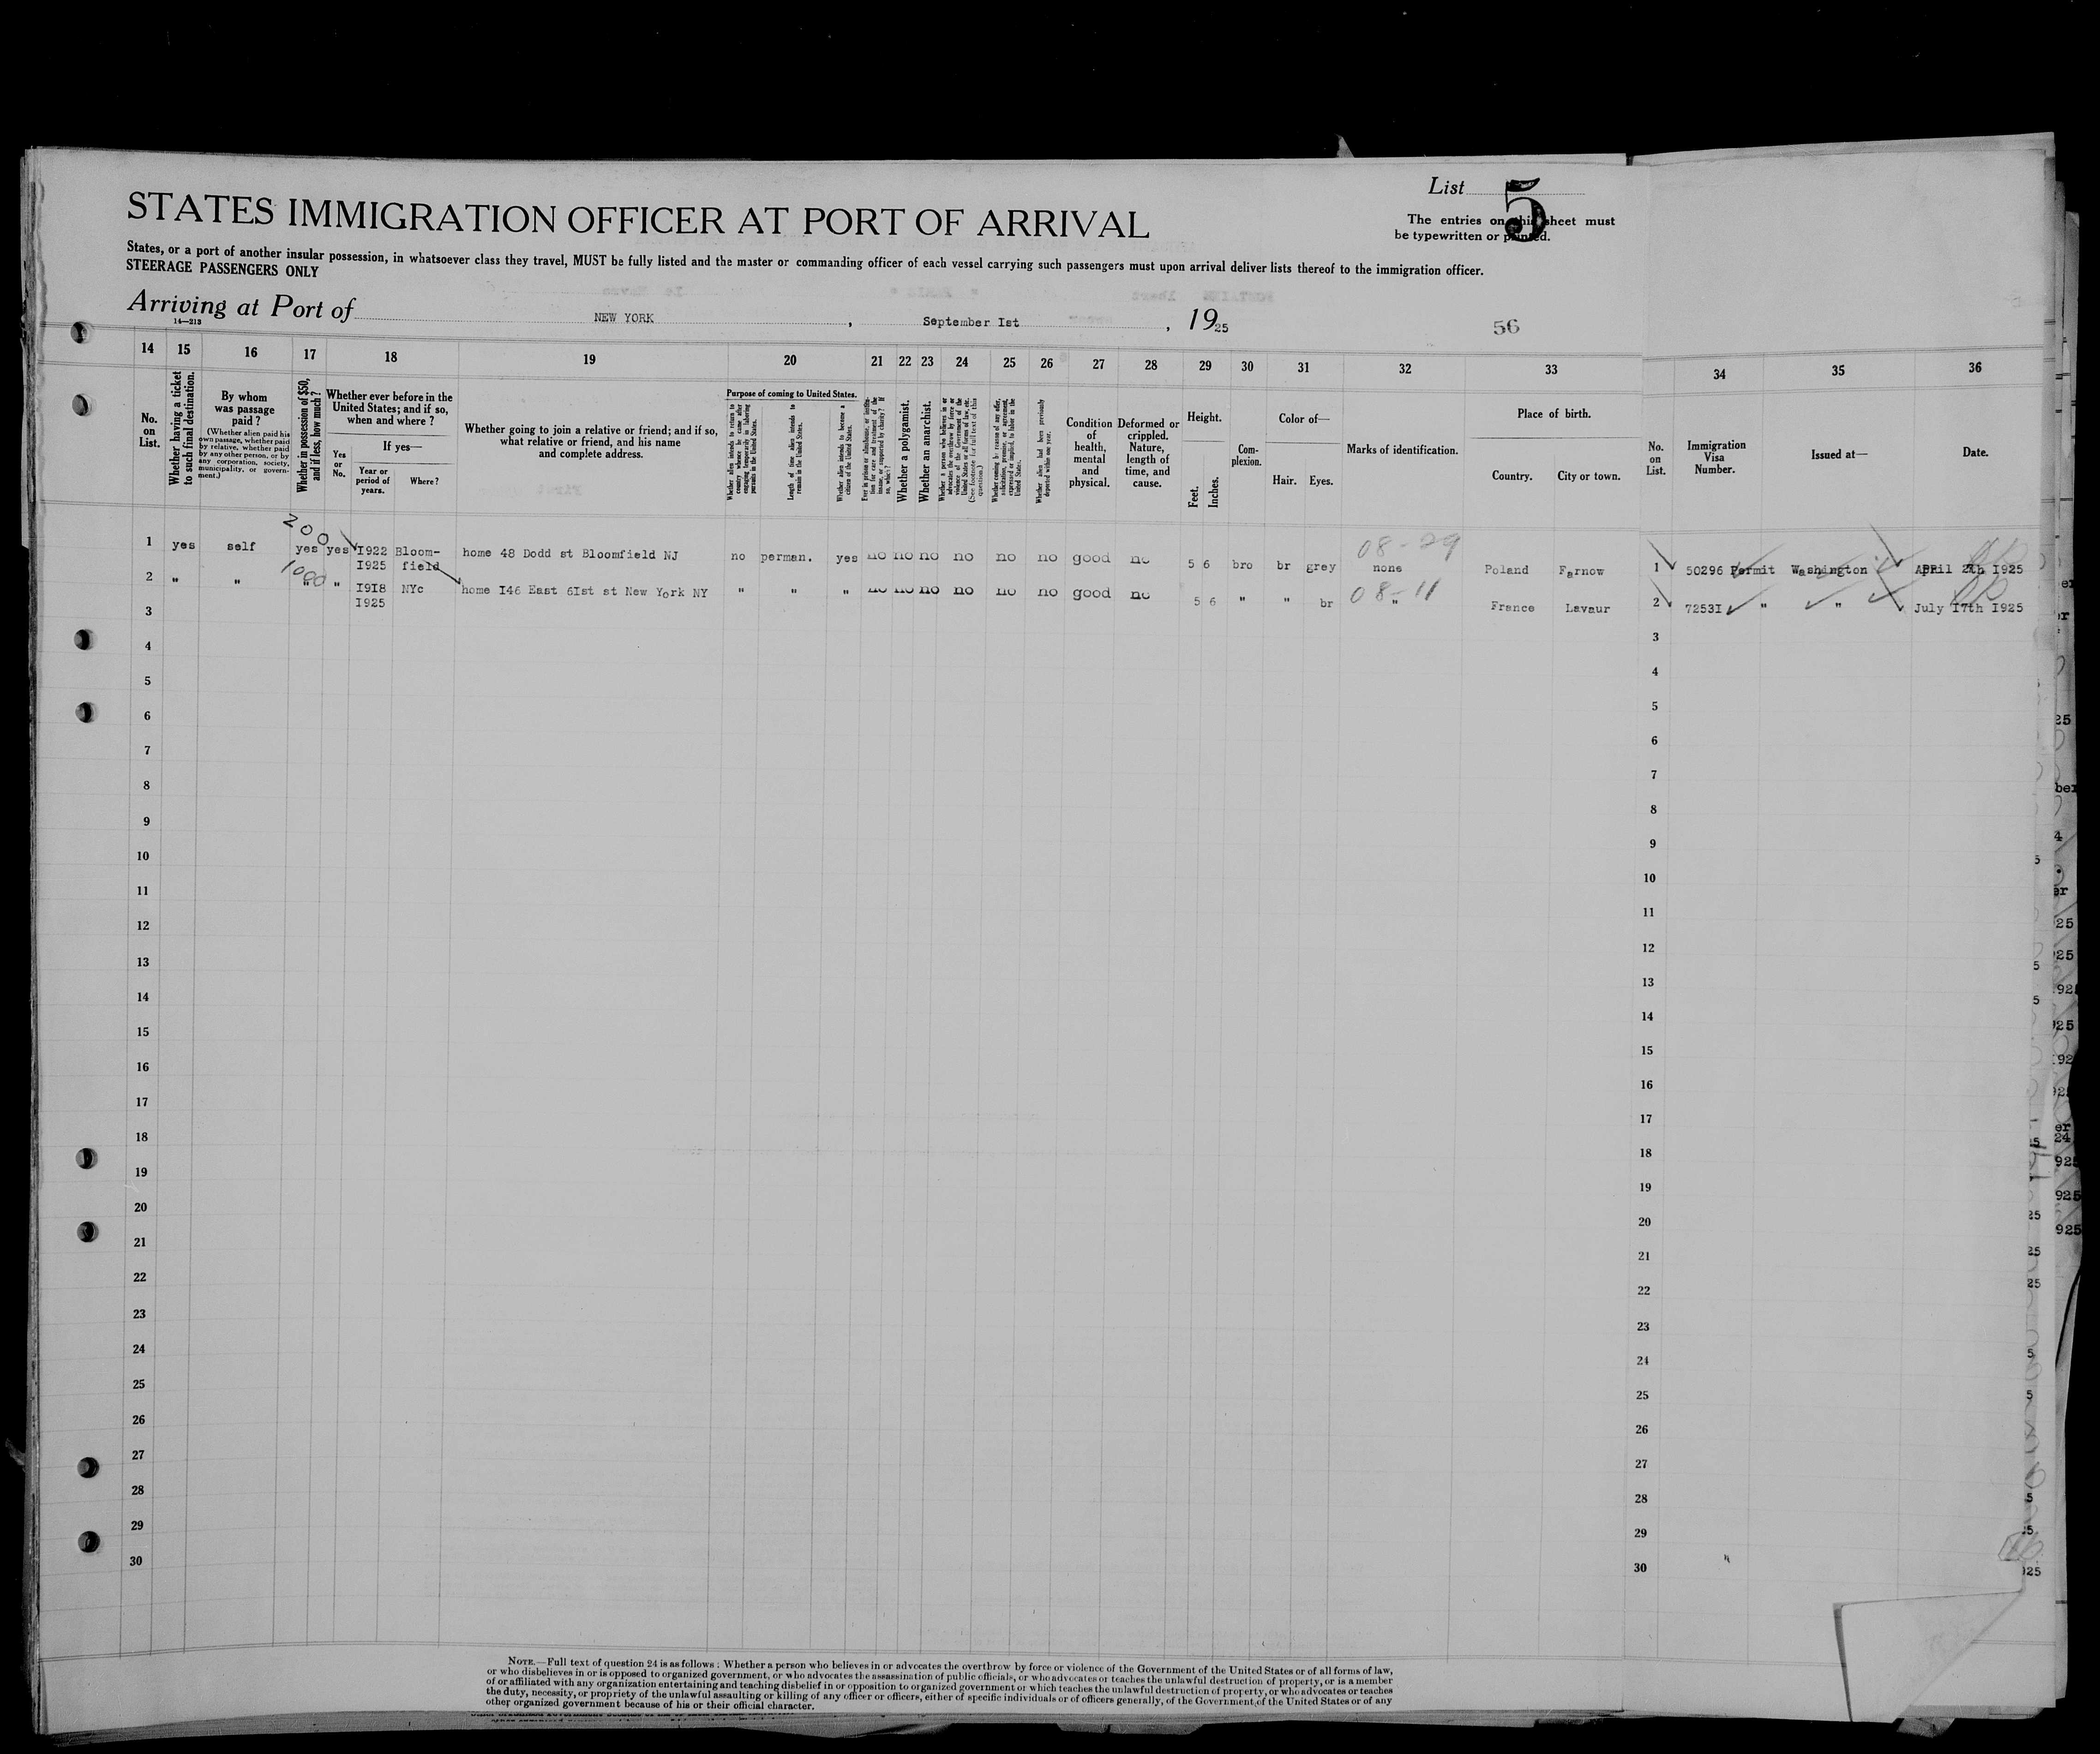 List 5
STATES IMMIGRATION OFFICER AT PORT OF ARRIVAL
The entries on this sheet must
be typewritten or printed.
States, or a port of another insular possession, in whatsoever class they travel, MUST be fully listed and the master or commanding officer of each vessel carrying such passengers must upon arrival deliver lists thereof to the immigration officer.
STEERAGE PASSENGERS ONLY
Arriving at Port of NEW YORK, September Ist, 1925
14—213
56
14 15 16 17 18 19 20 21 22 23 24 25 26 27 28 29 30 31 32 33 34 35 36
No. on List.
Whether having a ticket to such final destination.
By whom was passage paid?
(Whether alien paid his own passage, whether paid by relative, whether paid by any other person, or by any corporation, society, municipality, or government.)
Whether in possession of $50, and if less, how much?
Whether ever before in the United States; and if so, when and where?
Yes or No.
If yes—
Year or period of years.
Where?
Whether going to join a relative or friend; and if so, what relative or friend, and his name and complete address.
Purpose of coming to United States.
Whether alien intends to return to country whence he came after engaging temporarily in laboring pursuits in the United States.
Length of time alien intends to remain in the United States.
Whether alien intends to become a citizen of the United States.
Ever in prison or almshouse, or institution for care and treatment of the insane, or supported by charity? If so, which?
Whether a polygamist.
Whether an anarchist.
Whether a person who believes in or advocates the overthrow by force or violence of the Government of the United States or all forms of law, etc. (See footnote for full text of this question.)
Whether coming by reason of any offer, solicitation, promise, or agreement, expressed or implied, to labor in the United States.
Whether alien had been previously deported within one year.
Condition of health, mental and physical.
Deformed or crippled. Nature, length of time, and cause.
Height.
Feet.
Inches.
Complexion.
Color of—
Hair.
Eyes.
Marks of identification.
Place of birth.
Country.
City or town.
No. on List.
Immigration Visa Number.
Issued at—
Date.
200 08-29
1 yes self yes yes I922 Bloom- home 48 Dodd st Bloomfield NJ no perman. yes no no no no no no good no 5 6 bro br grey none Poland Farnow 1 50296 Permit Washington APRil 27th I925
I925 field
1000 08-11
2 " " " " I9I8 NYc home I46 East 6Ist st New York NY " " " no no no no no no good no 5 6 " " br " France Lavaur 2 7253I " " July I7th I925
I925
3 3
4 4
5 5
6 6
7 7
8 8
9 9
10 10
11 11
12 12
13 13
14 14
15 15
16 16
17 17
18 18
19 19
20 20
21 21
22 22
23 23
24 24
25 25
26 26
27 27
28 28
29 29
30 30
NOTE.—Full text of question 24 is as follows: Whether a person who believes in or advocates the overthrow by force or violence of the Government of the United States or of all forms of law,
or who disbelieves in or is opposed to organized government, or who advocates the assassination of public officials, or who advocates or teaches the unlawful destruction of property, or is a member
of or affiliated with any organization entertaining and teaching disbelief in or opposition to organized government or which teaches the unlawful destruction of property, or who advocates or teaches
the duty, necessity, or propriety of the unlawful assaulting or killing of any officer or officers, either of specific individuals or of officers generally, of the Government of the United States or of any
other organized government because of his or their official character.